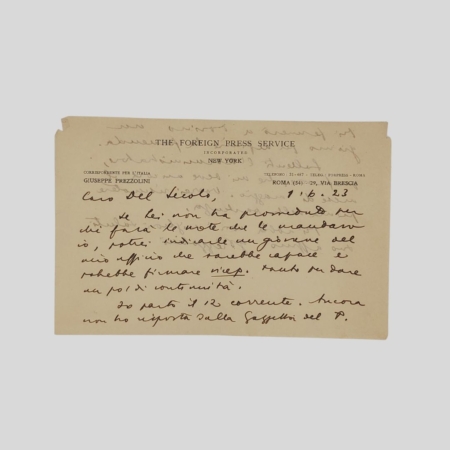 THE FOREIGN PRESS SERVICE
INCORPORATED
NEW YORK
CORRISPONDENTE PER L'ITALIA
GIUSEPPE PREZZOLINI
ROMA (34) - 29, VIA BRESCIA
Caro Del Secolo, 1.6.23
Se Lei non ha provveduto per
chi farà le note che le mandavo
io, potrei indicarle un giovane del
mio ufficio che sarebbe capace e
potrebbe firmare vicep. tanto per dare
un po' di continuità.
Io parto il 12 corrente. Ancora
non ho risposta dalla Gazzetta del P.